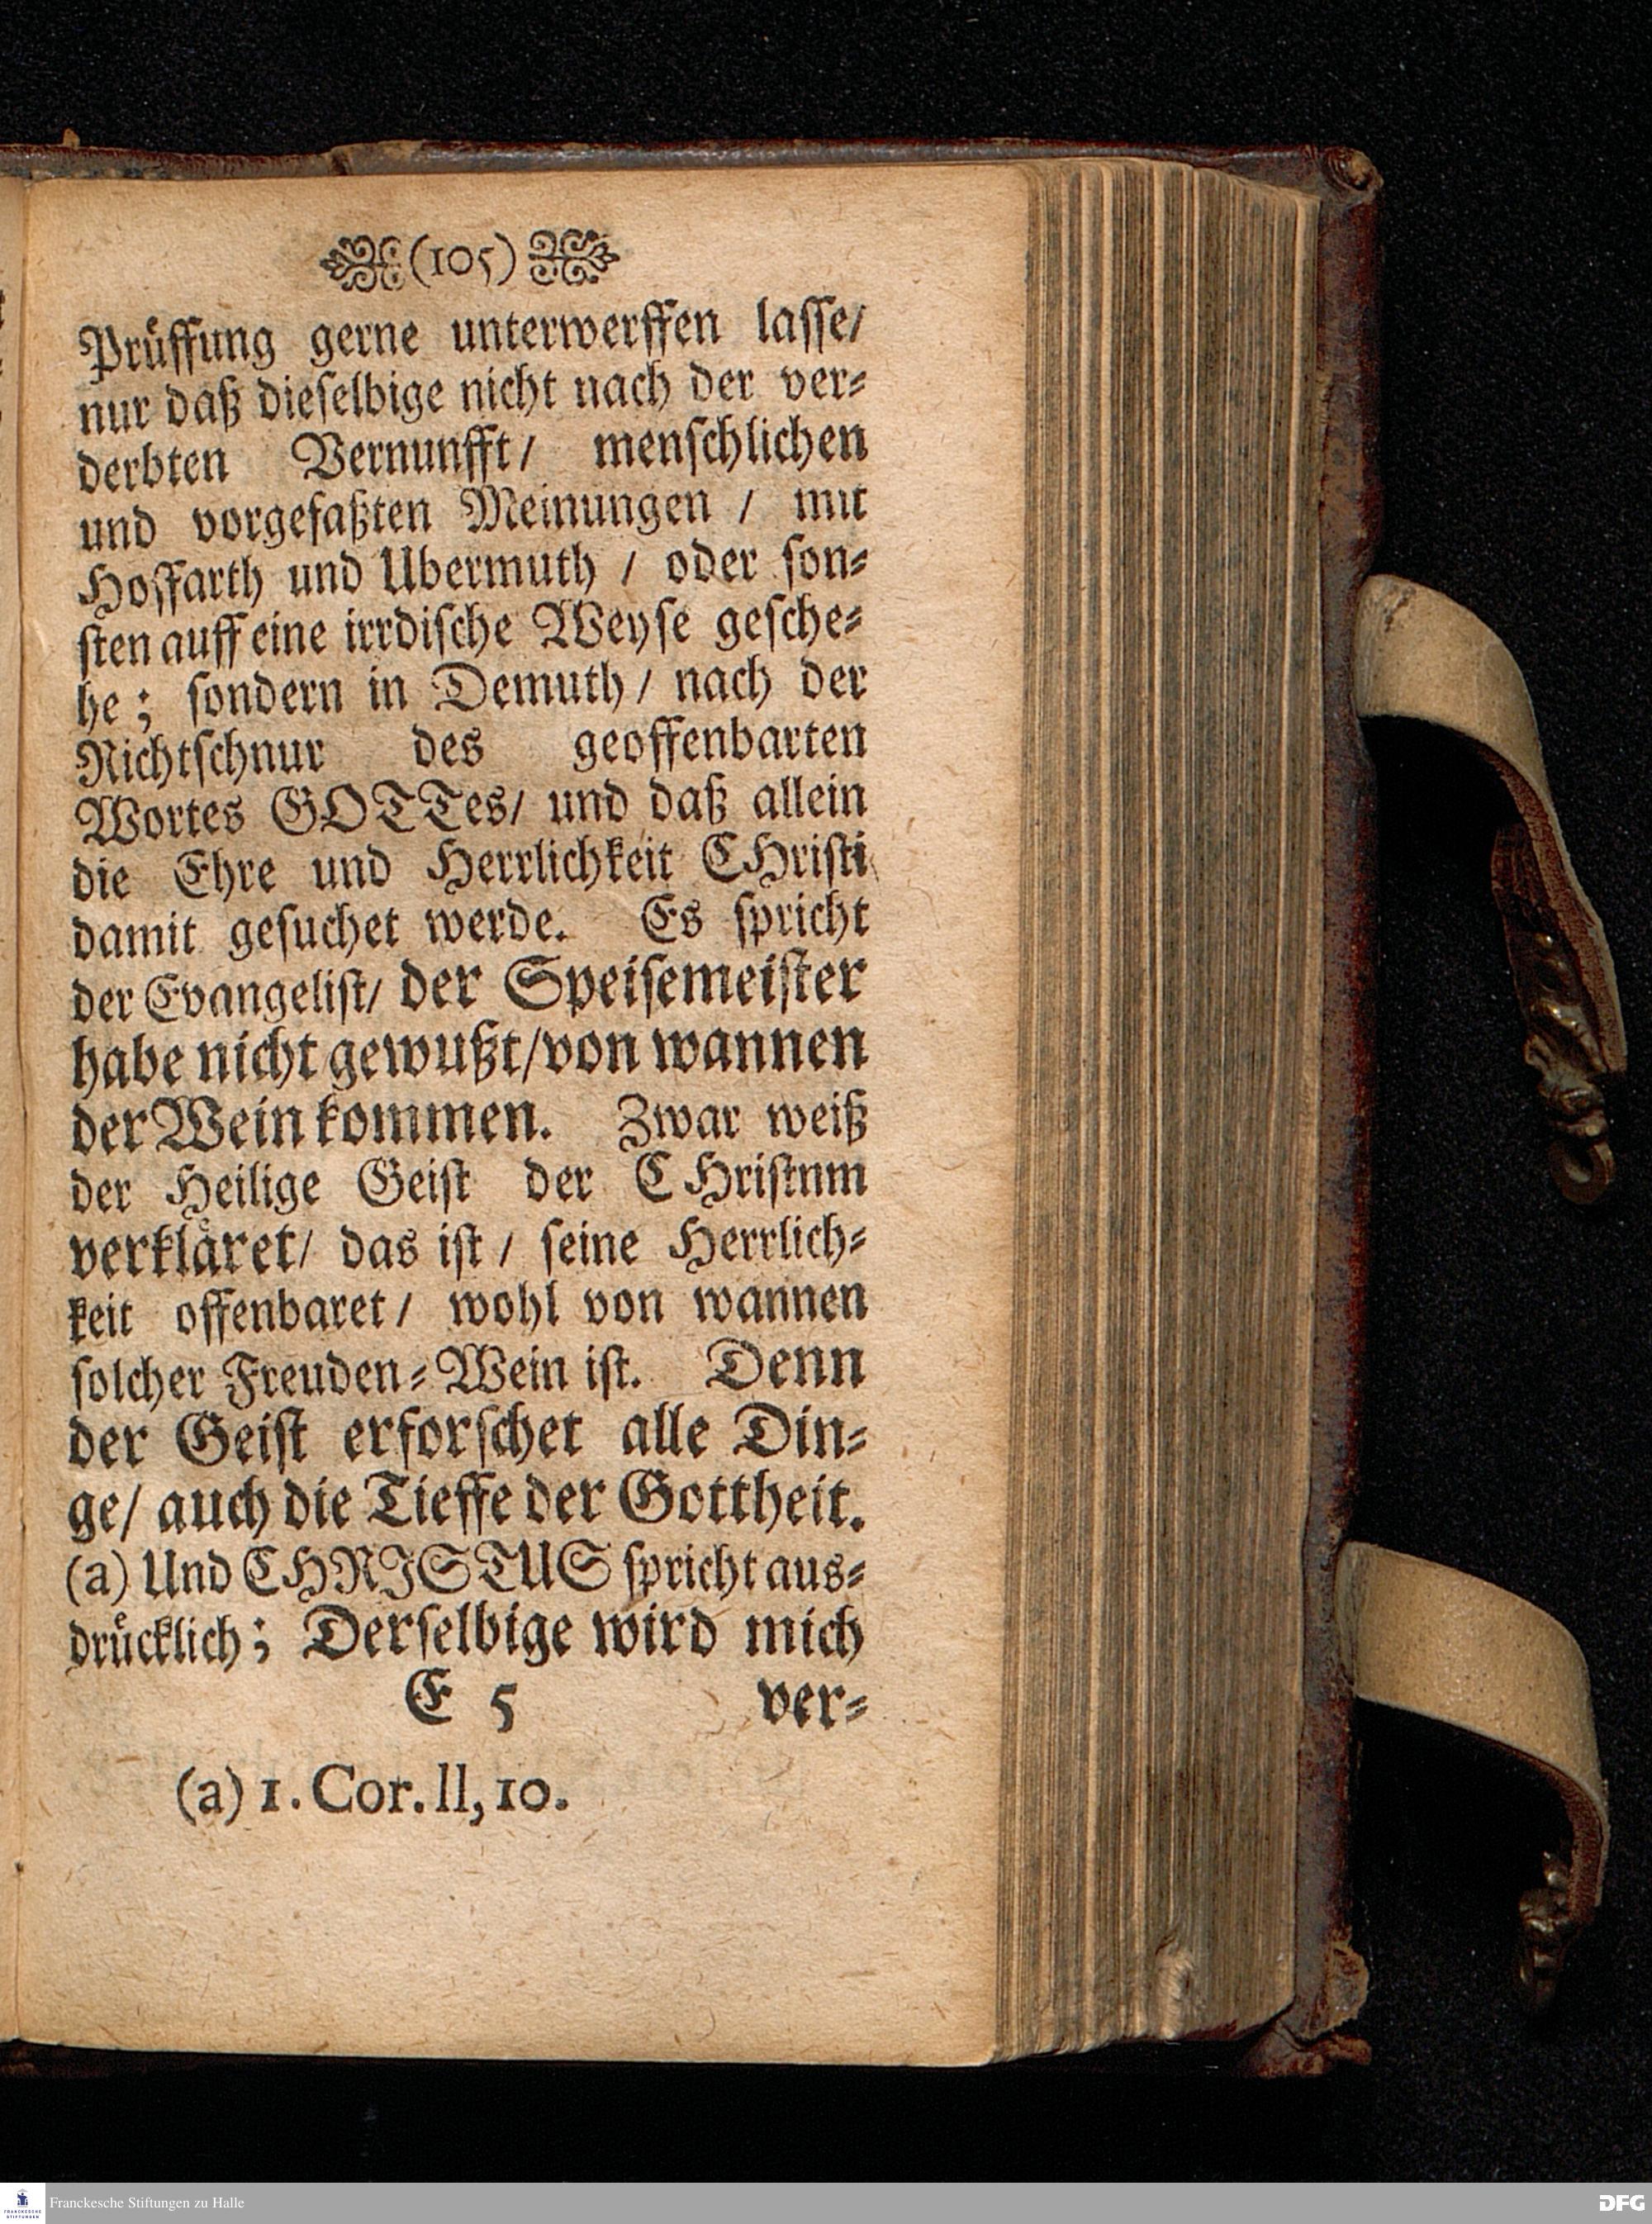 (105)
Prüffung gerne unterwerffen lasse/
nur daß dieselbige nicht nach der ver-
derbten Vernunfft/ menschlichen
und vorgefaßten Meinungen / mit
Hoffarth und Ubermuth / oder son-
sten auff eine irrdische Weyse gesche-
he; sondern in Demuth / nach der
Richtschnur des geoffenbarten
Wortes GOTTes/ und daß allein
die Ehre und Herrlichkeit CHristi
damit gesuchet werde. Es spricht
der Evangelist/ der Speisemeister
habe nicht gewußt/von wannen
der Wein kommen. Zwar weiß
der Heilige Geist der CHristnm
verkläret/ das ist / seine Herrlich-
keit offenbaret / wohl von wannen
solcher Freuden-Wein ist. Denn
der Geist erforschet alle Din-
ge/ auch die Tieffe der Gottheit.
(a) Und CHRISTUS spricht aus-
drücklich; Derselbige wird mich
E 5 ver-
(a) 1. Cor. II, 10.
FRANCKESCHE STIFTUNGEN
Franckesche Stiftungen zu Halle
DFG